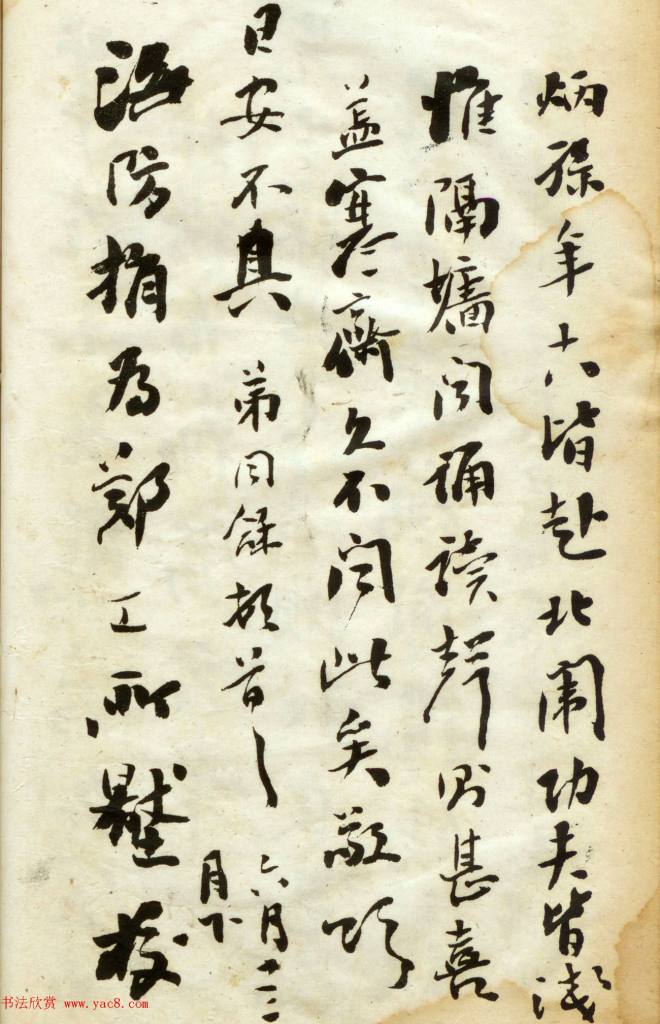 炳孫年六皆赴北闈功夫皆淺
惟隔牆聞誦讀聲則甚喜
蓋寒齋久不聞此矣敬頌
日安不具 弟同龢頓首 六月十二
月下
海防捐為鄭工所壓
书法欣赏 www.yac8.com